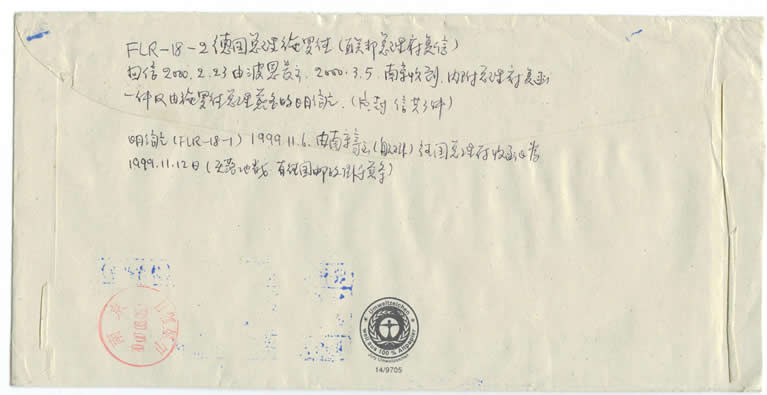 FLR-18-2 德国总理施罗德(联邦总理府复信)
回信2000.2.23由波恩发出, 2000.3.5.南京收到.内附总理府复函
一件及由施罗德总理签名的明信片.(片封信共3件)
明信片(FLR-18-1) 1999.11.6.由南京寄(航挂)德国总理府收函日为
1999.11.12日(无落地戳.有德国邮政
南京
Umweltzeichen
weil aus 100% Altpapier
Jury Umweltzeichen
14/9705